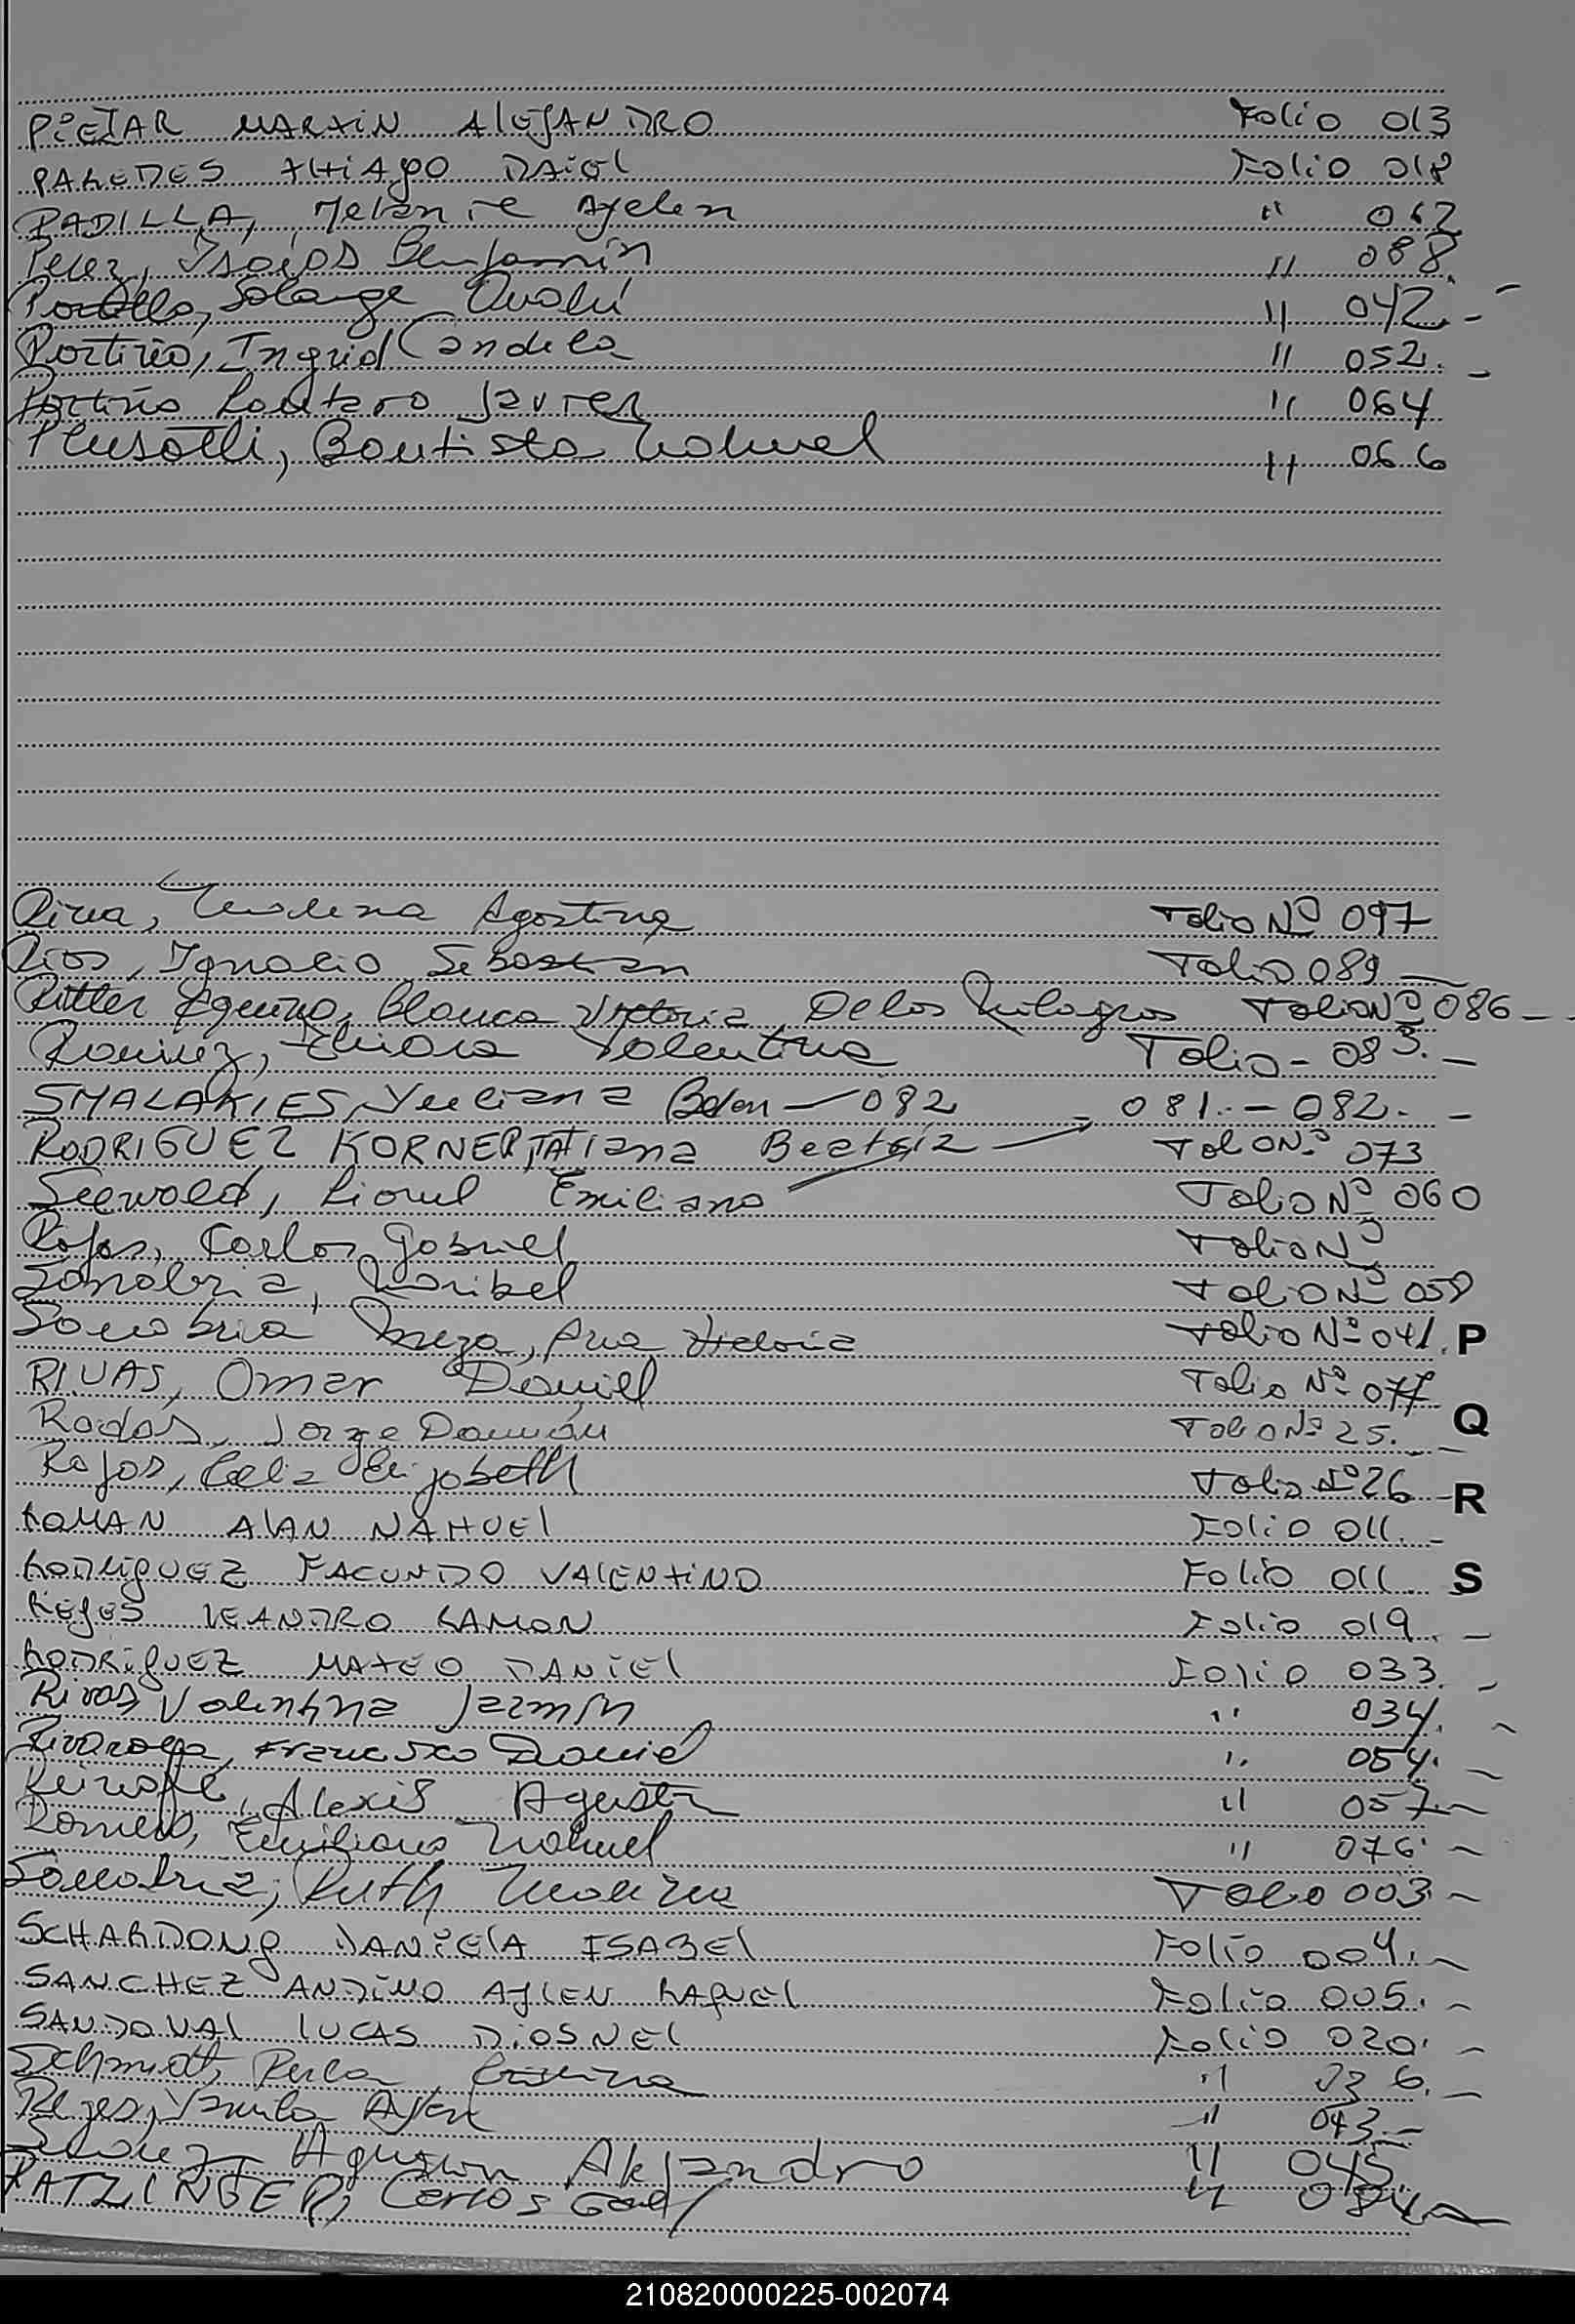 PIETAR MARTIN ALEJANDRO Folio 013
PAREDES THIAGO DAIEL Folio 018
PADILLA, Melanie Ayelen " 062
Perez, Isaias Benjamin " 088.
Portillo, Solange Anahí " 042. -
Portiño, Ingrid Candela " 052. -
Portiño Lautaro Javier " 064
Plusotti, Bautista Nahuel " 066
Riva, Morena Agostina Folio Nº 097
Rios, Ignacio Sebastian Folio 089 -
Ritter Aquino, Blanca Victoria De los Milagros Folio Nº 086 - -
Ramirez, Thiara Valentina Folio - 083. -
SMALAKIES, Yuliana Belen - 082 081. - 082. -
RODRIGUEZ KORNER, TATiana Beatriz Folio Nº 073
Seewald, Lionel Emiliano Folio Nº 060
Rojas, Carlos Gabriel Folio Nº
Sanabria, Maribel Folio Nº 058
Sanabria Meza, Ana Victoria Folio Nº 041. P
RIVAS, Omar Daniel Folio Nº 077
Rodas, Jorge Damián Folio Nº 25. - Q
Rojas, Celia Elizabeth Folio Nº 26 - R
ROMAN ALAN NAHUEL Folio 011. -
RODRIGUEZ FACUNDO VALENTINO Folio 011 S
REYES LEANDRO RAMON Folio 019. -
RODRIGUEZ MATEO DANIEL Folio 033. -
Rivas, Valentina Jazmin " 034. -
Rivarola, Francisco Daniel " 054. -
Alexis Agustin " 057. -
Romero, Emiliano Nahuel " 076. -
Sanabria, Ruth Morena Folio 003. -
SCHARDONG DANIELA ISABEL Folio 004. -
SANCHEZ ANDINO AYLEN RAQUEL Folio 005. -
SANDOVAL LUCAS DIOSNEL Folio 020. -
Schmidt, Perla Cristina " 036. -
Reyes, Yamila Aylen " 043. -
Suarez, Agustin Alejandro " 045
RATZINGER, Carlos Gael " 084 -
210820000225-002074